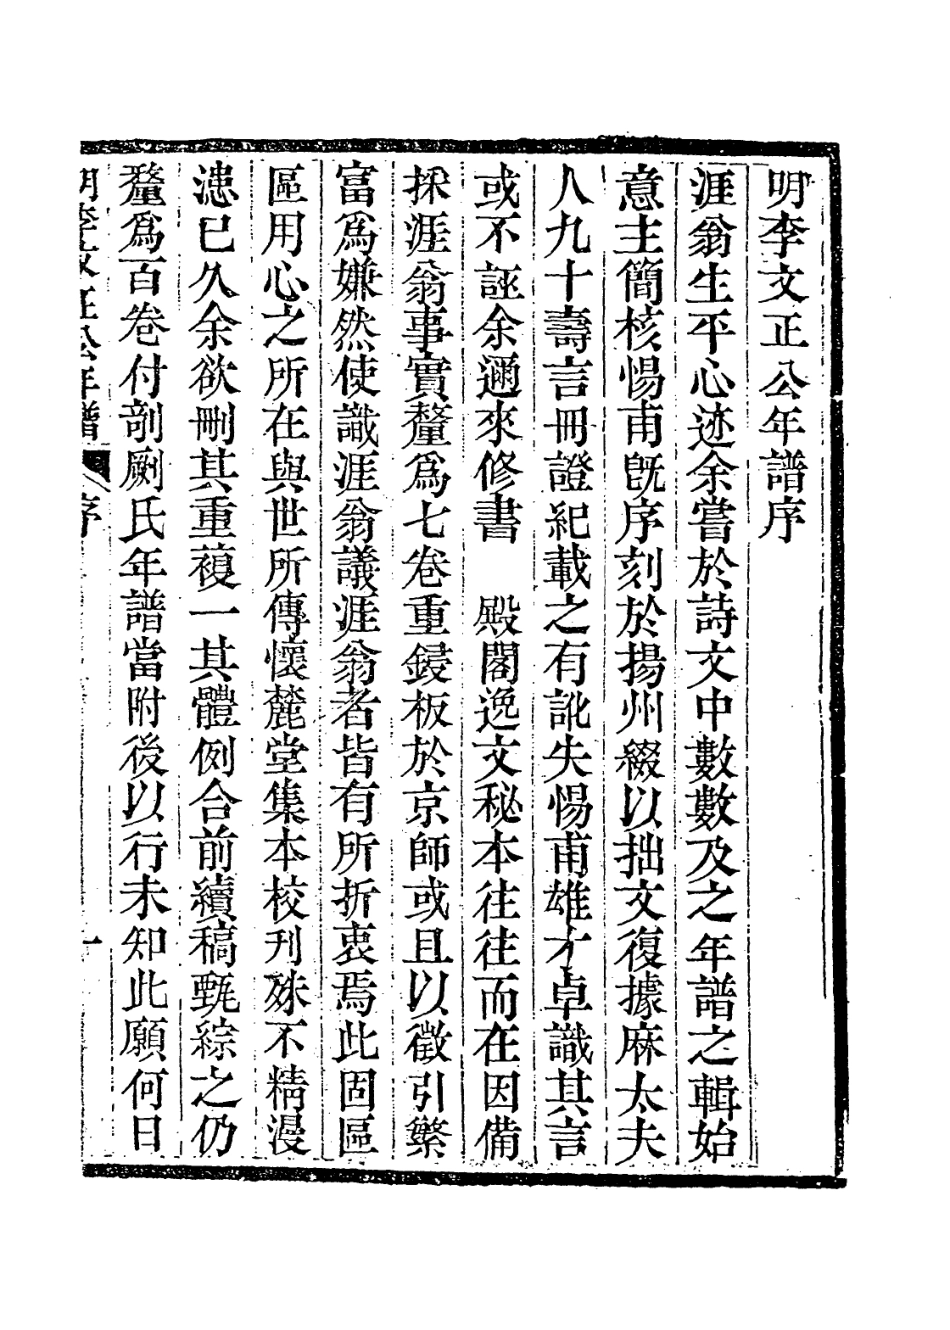 明李文正公年譜序
涯翁生平心迹余嘗於詩文中數數及之年譜之輯始
意主簡核惕甫旣序刻於揚州綴以拙文復據麻太夫
人九十壽言冊證紀載之有訛失惕甫雄才卓識其言
或不誣余邇來修書　殿閣逸文秘本往往而在因備
採涯翁事實釐爲七卷重鋟板於京師或且以徵引繁
富爲嫌然使識涯翁議涯翁者皆有所折衷焉此固區
區用心之所在與世所傳懷麓堂集本校刋殊不精漫
漶已久余欲刪其重複一其體例合前續稿甄綜之仍
釐爲百卷付剞劂氏年譜當附後以行未知此願何日
明李文正公年譜　序　一